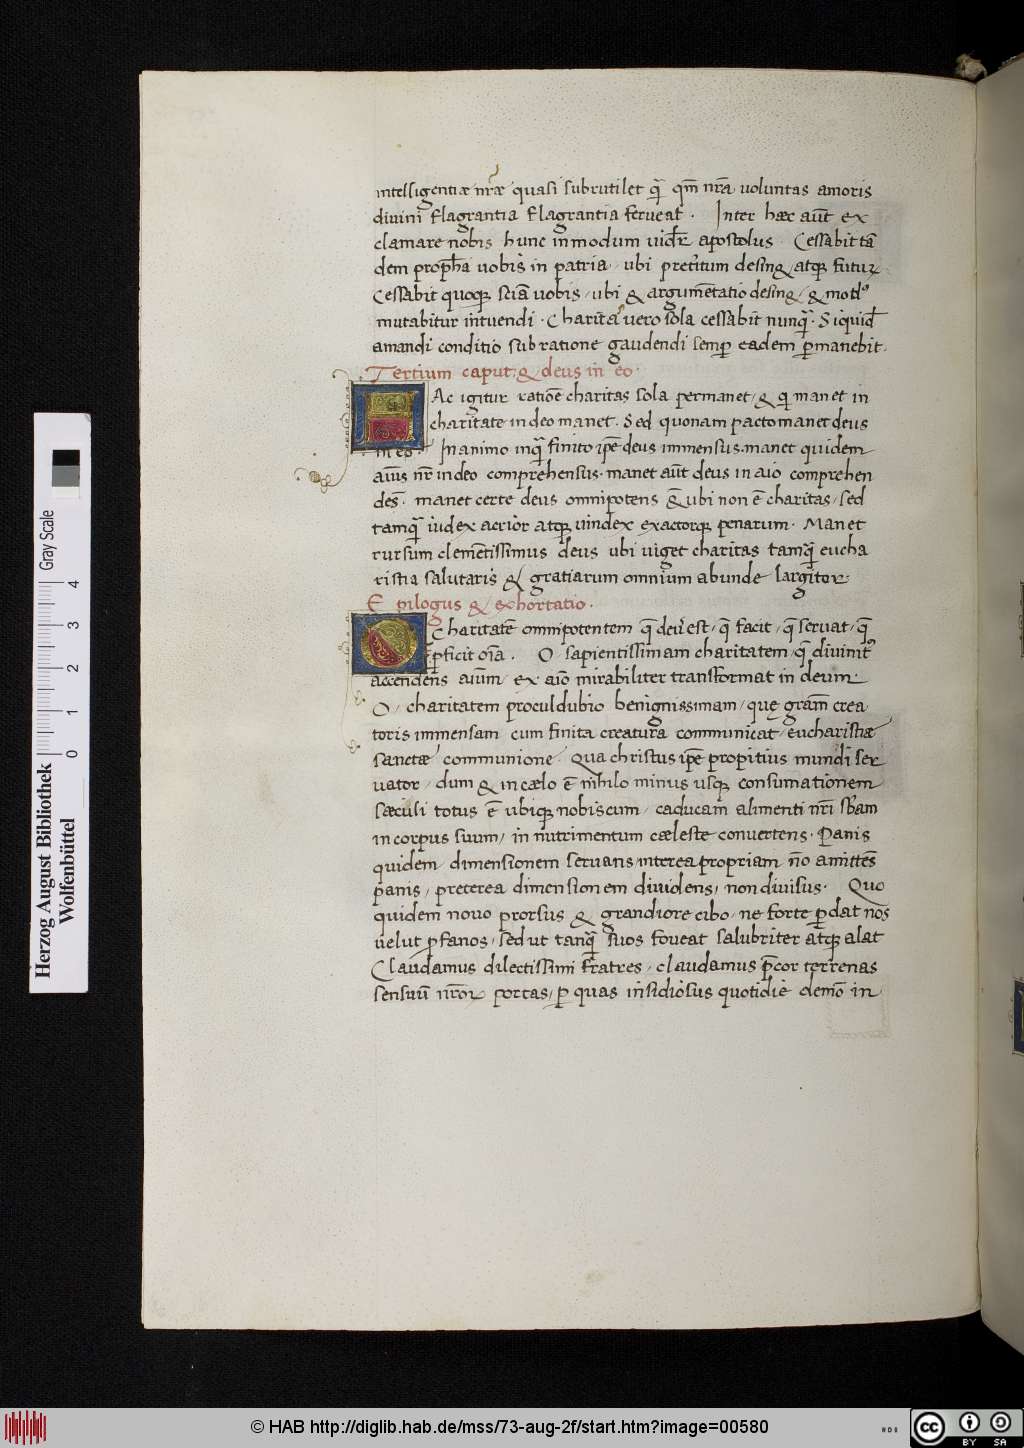 intelligentiæ nr̃æ quasi subrutilet q̃ qm̃ nr̃a voluntas amoris
divini flagrantia flagrantia ferveat. Inter hæc aũt ex
clamare nobis hunc in modum vidẽr apostolus. Cessabit tã
dem prophẽa vobis in patria, ubi preteritum desinẽ, atq; futur
Cessabit quoq; sciã vobis, ubi & argumẽtatio desinẽ, & motꝰ
mutabitur intuendi. Charitas vero sola cessabit nunq̃. Siquid
amandi conditio sub ratione gaudendi semp eadem p̱manebit.
Tertium caput: & deus in eo.
HAc igitur ratiõe charitas sola permanet, & qui manet in
charitate in deo manet. Sed quonam pacto manet deus
in eo? In animo inq̃ finito ip̃e deus immensus. manet quidem
aĩus nr̃ in deo comprehensus. manet aũt deus in aĩo comprehen
dẽs. manet certe deus omnipotens & ubi non ẽ charitas, sed
tamq̃ iudex acrior atq; vindex exactorq; penarum. Manet
rursum clemẽtissimus deus ubi viget charitas tamq̃ eucha
ristia salutaris & gratiarum omnium abunde largitor.
Epilogus & exhortatio.
O Charitatẽ omnipotentem q̃ deus est, q̃ facit, q̃ servat, q̃
p̱ficit oĩa. O sapientissimam charitatem, q̃ divinitꝰ
accendens aĩum, ex aĩo mirabiliter transformat in deum.
O, charitatem proculdubio benignissimam, quę gratiam crea
toris immensam cum finita creatura communicat, eucharistiæ
sanctæ communione. Qua christus ip̃e propitius mundi ser
vator, dum & in cælo ẽ nihilo minus usq; consumationem
sæculi totus ẽ ubiq; nobiscum, caducam alimenti nr̃i sb̃am
in corpus suum, in nutrimentum cæleste convertens. Panis
quidem dimensionem servans interea propriam nõ amittẽs
panis, preterea dimensionem dividens, non divisus. Quo
quidem novo prorsus & grandiore cibo, ne forte p̱dat nos
velut p̱fanos, sed ut tanq̃ suos foveat salubriter atq; alat
Claudamus dilectissimi fratres, claudamus p̃cor terrenas
sensuũ nr̃oꝝ portas, p̱ quas insidiosus quotidie demõ in
Herzog August Bibliothek
Wolfenbüttel
Gray Scale
0 1 2 3 4
© HAB http://diglib.hab.de/mss/73-aug-2f/start.htm?image=00580
cc BY SA